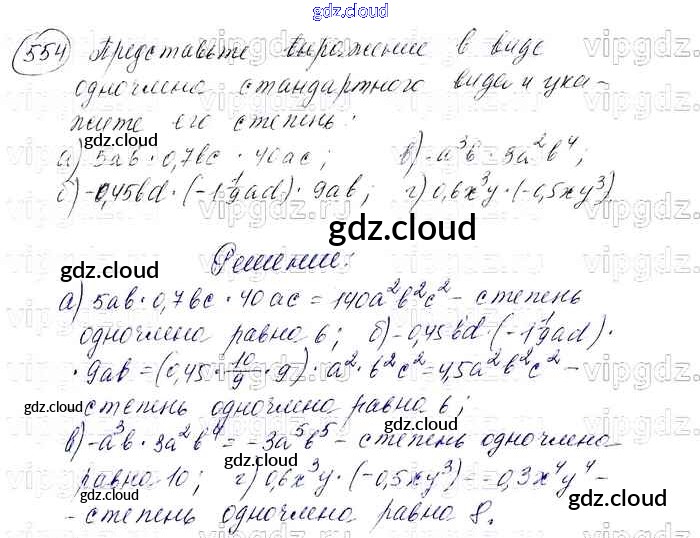 gdz.cloud
554 Представьте выражение в виде
одночлена стандартного вида и ука-
жите его степень:
а) 5ab · 0,7bc · 40ac; в) -a³b · 3a²b⁴;
б) -0,45bd · (-1 1/9 ad) · 9ab; г) 0,6x³y · (-0,5xy³)
Решение:
а) 5ab · 0,7bc · 40ac = 140a²b²c² - степень
одночлена равна 6; б) -0,45bd · (-1 1/9 ad) ·
· 9ab = (0,45 · 10/9 · 9) · a² · b²c² = 4,5a²b²c² -
- степень одночлена равна 6;
в) -a³b · 3a²b⁴ = -3a⁵b⁵ - степень одночлена
равна 10; г) 0,6x³y · (-0,5xy³) = -0,3x⁴y⁴ -
- степень одночлена равна 8.